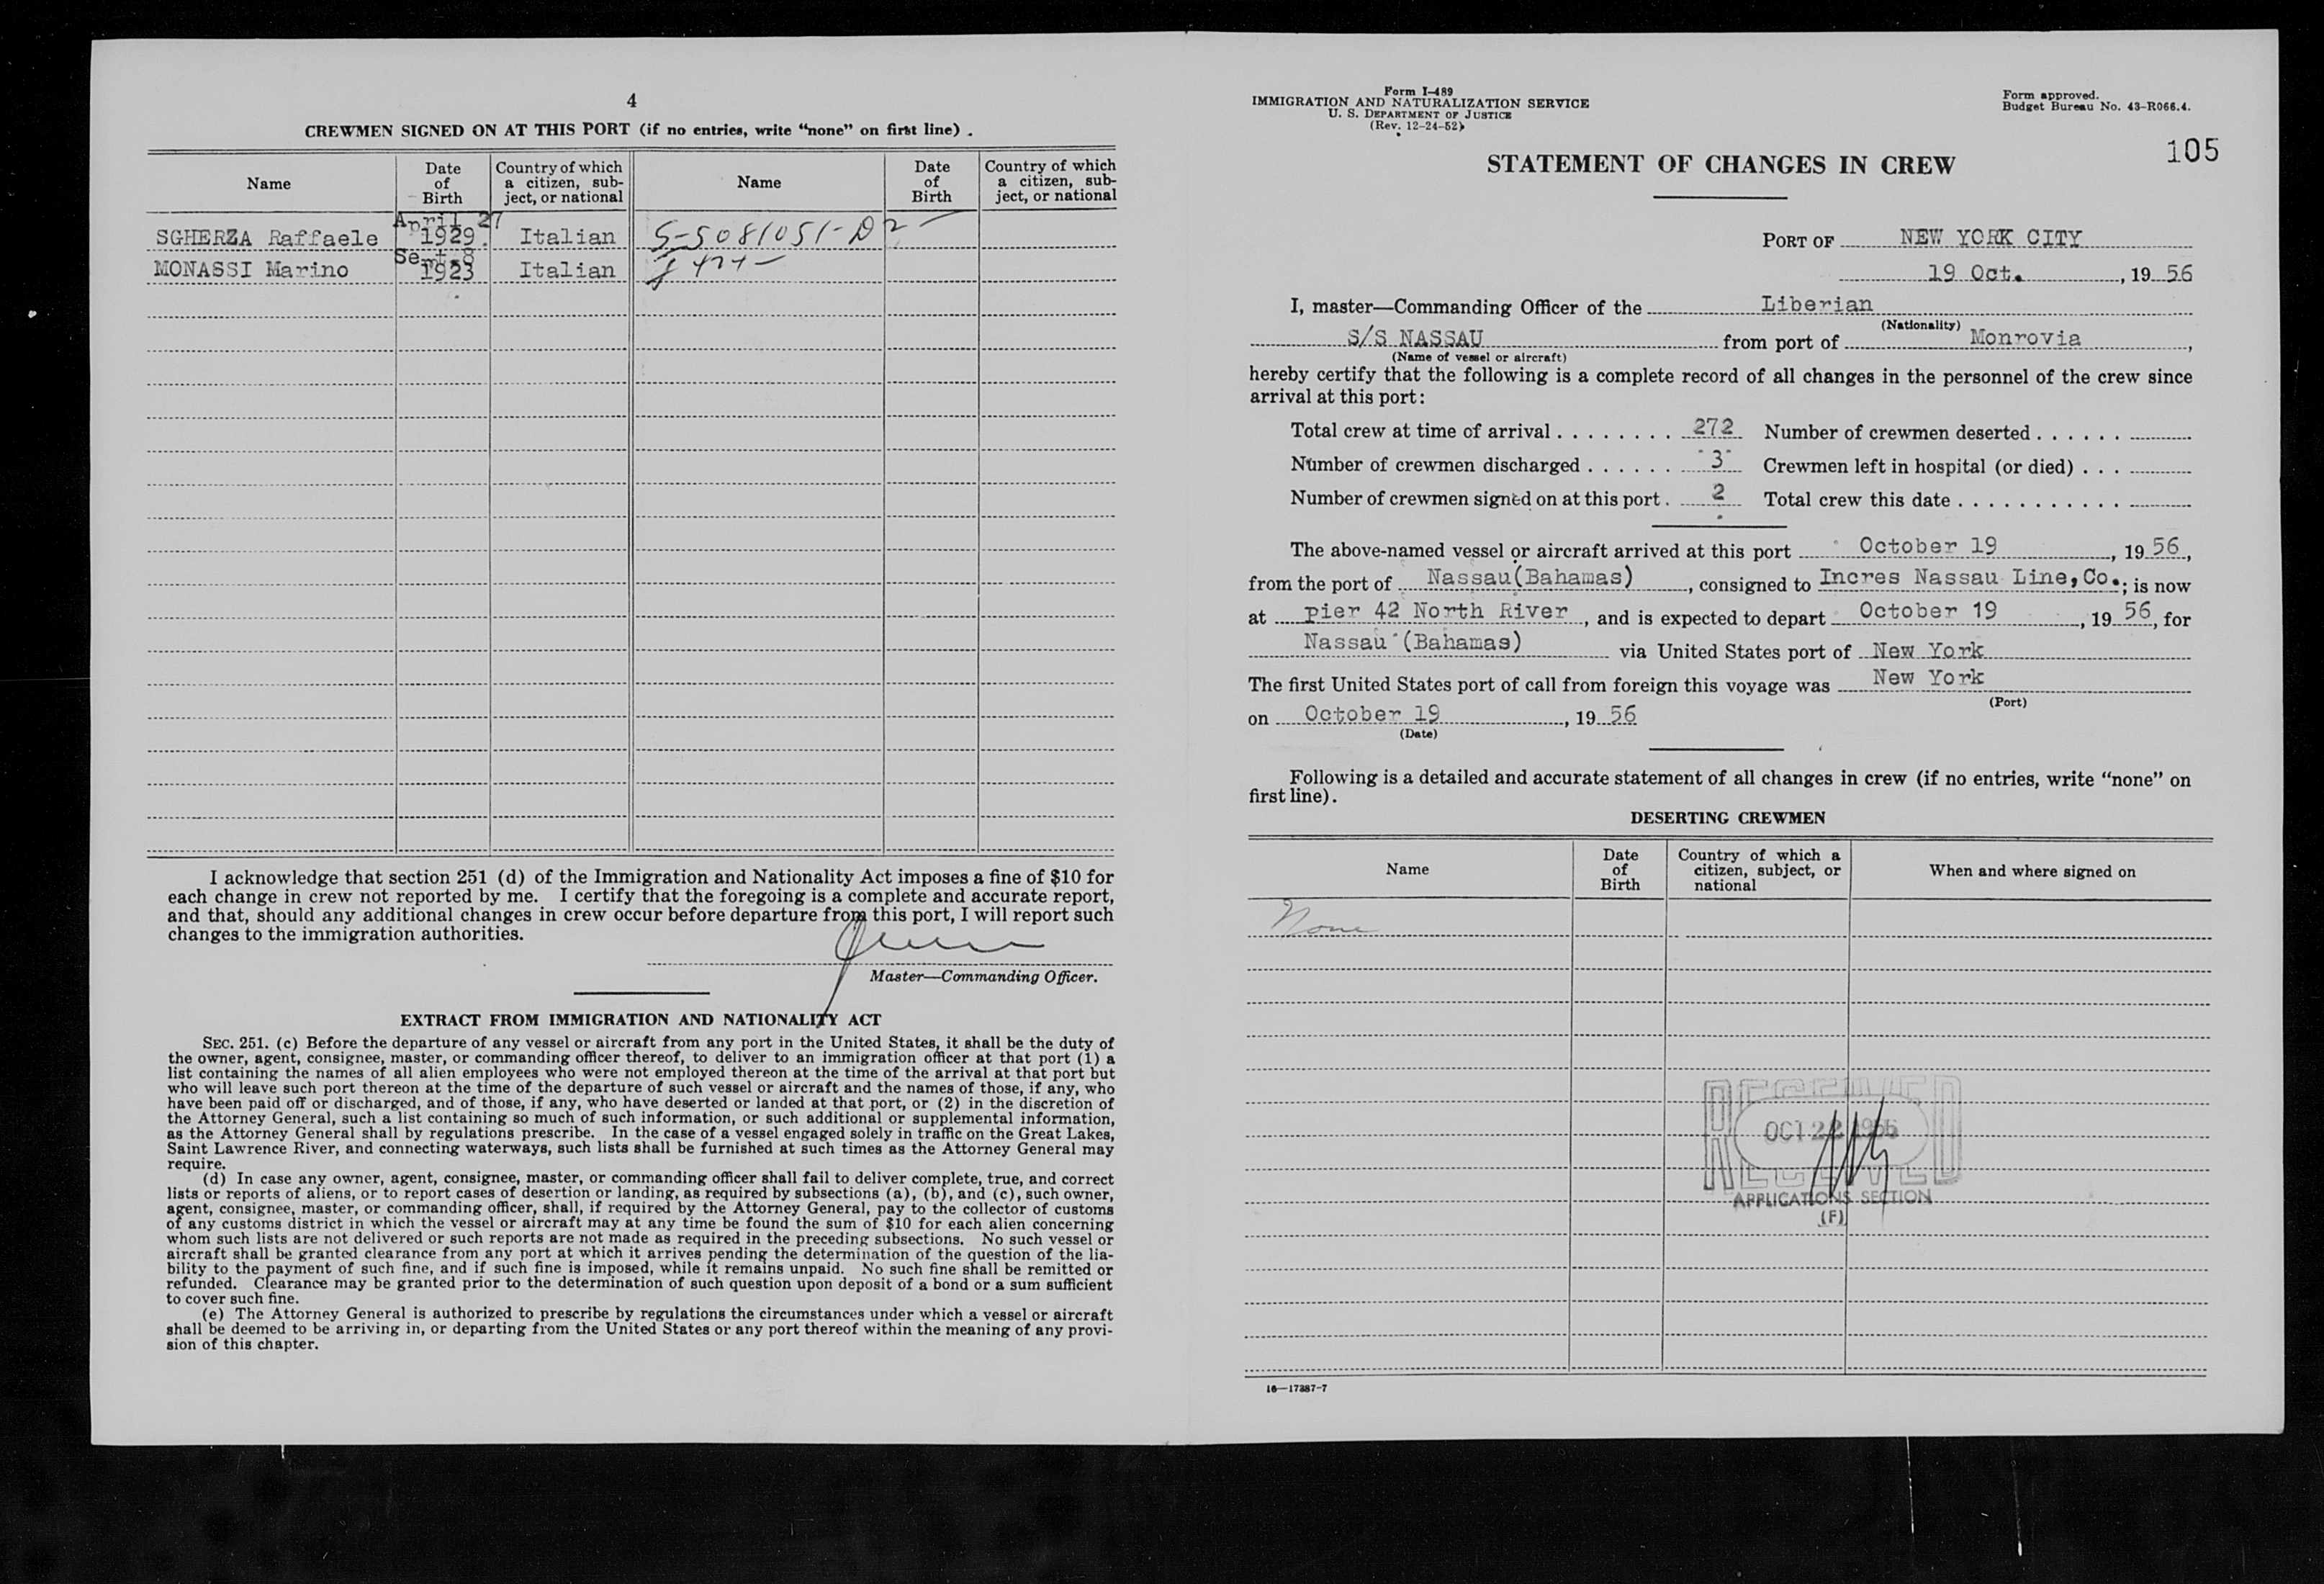 4
CREWMEN SIGNED ON AT THIS PORT (if no entries, write "none" on first line).
Name
Date of Birth
Country of which a citizen, subject, or national
Name
Date of Birth
Country of which a citizen, subject, or national
SGHERZA Raffaele April 27 1929. Italian S-5081051-D2
MONASSI Marino Sept. 8 1923 Italian
I acknowledge that section 251 (d) of the Immigration and Nationality Act imposes a fine of $10 for
each change in crew not reported by me. I certify that the foregoing is a complete and accurate report,
and that, should any additional changes in crew occur before departure from this port, I will report such
changes to the immigration authorities.
Master—Commanding Officer.
EXTRACT FROM IMMIGRATION AND NATIONALITY ACT
SEC. 251. (c) Before the departure of any vessel or aircraft from any port in the United States, it shall be the duty of
the owner, agent, consignee, master, or commanding officer thereof, to deliver to an immigration officer at that port (1) a
list containing the names of all alien employees who were not employed thereon at the time of the arrival at that port but
who will leave such port thereon at the time of the departure of such vessel or aircraft and the names of those, if any, who
have been paid off or discharged, and of those, if any, who have deserted or landed at that port, or (2) in the discretion of
the Attorney General, such a list containing so much of such information, or such additional or supplemental information,
as the Attorney General shall by regulations prescribe. In the case of a vessel engaged solely in traffic on the Great Lakes,
Saint Lawrence River, and connecting waterways, such lists shall be furnished at such times as the Attorney General may
require.
(d) In case any owner, agent, consignee, master, or commanding officer shall fail to deliver complete, true, and correct
lists or reports of aliens, or to report cases of desertion or landing, as required by subsections (a), (b), and (c), such owner,
agent, consignee, master, or commanding officer, shall, if required by the Attorney General, pay to the collector of customs
of any customs district in which the vessel or aircraft may at any time be found the sum of $10 for each alien concerning
whom such lists are not delivered or such reports are not made as required in the preceding subsections. No such vessel or
aircraft shall be granted clearance from any port at which it arrives pending the determination of the question of the lia-
bility to the payment of such fine, and if such fine is imposed, while it remains unpaid. No such fine shall be remitted or
refunded. Clearance may be granted prior to the determination of such question upon deposit of a bond or a sum sufficient
to cover such fine.
(e) The Attorney General is authorized to prescribe by regulations the circumstances under which a vessel or aircraft
shall be deemed to be arriving in, or departing from the United States or any port thereof within the meaning of any provi-
sion of this chapter.
Form I-489
IMMIGRATION AND NATURALIZATION SERVICE
U. S. DEPARTMENT OF JUSTICE
(Rev. 12-24-52)
Form approved.
Budget Bureau No. 43-R066.4.
105
STATEMENT OF CHANGES IN CREW
PORT OF NEW YORK CITY
19 Oct., 19 56
I, master—Commanding Officer of the Liberian
(Nationality)
S/S NASSAU from port of Monrovia,
(Name of vessel or aircraft)
hereby certify that the following is a complete record of all changes in the personnel of the crew since
arrival at this port:
Total crew at time of arrival . . . . . . . . 272 Number of crewmen deserted . . . . . .
Number of crewmen discharged . . . . . . 3 Crewmen left in hospital (or died) . . .
Number of crewmen signed on at this port . 2 Total crew this date . . . . . . . . . . .
The above-named vessel or aircraft arrived at this port October 19, 19 56,
from the port of Nassau(Bahamas), consigned to Incres Nassau Line,Co.; is now
at pier 42 North River, and is expected to depart October 19, 19 56, for
Nassau (Bahamas) via United States port of New York
The first United States port of call from foreign this voyage was New York
(Port)
on October 19, 19 56
(Date)
Following is a detailed and accurate statement of all changes in crew (if no entries, write "none" on
first line).
DESERTING CREWMEN
Name
Date of Birth
Country of which a citizen, subject, or national
When and where signed on
None
RECEIVED
OCT 22 1956
RECEIVED
APPLICATIONS SECTION
(F)
16—17387-7